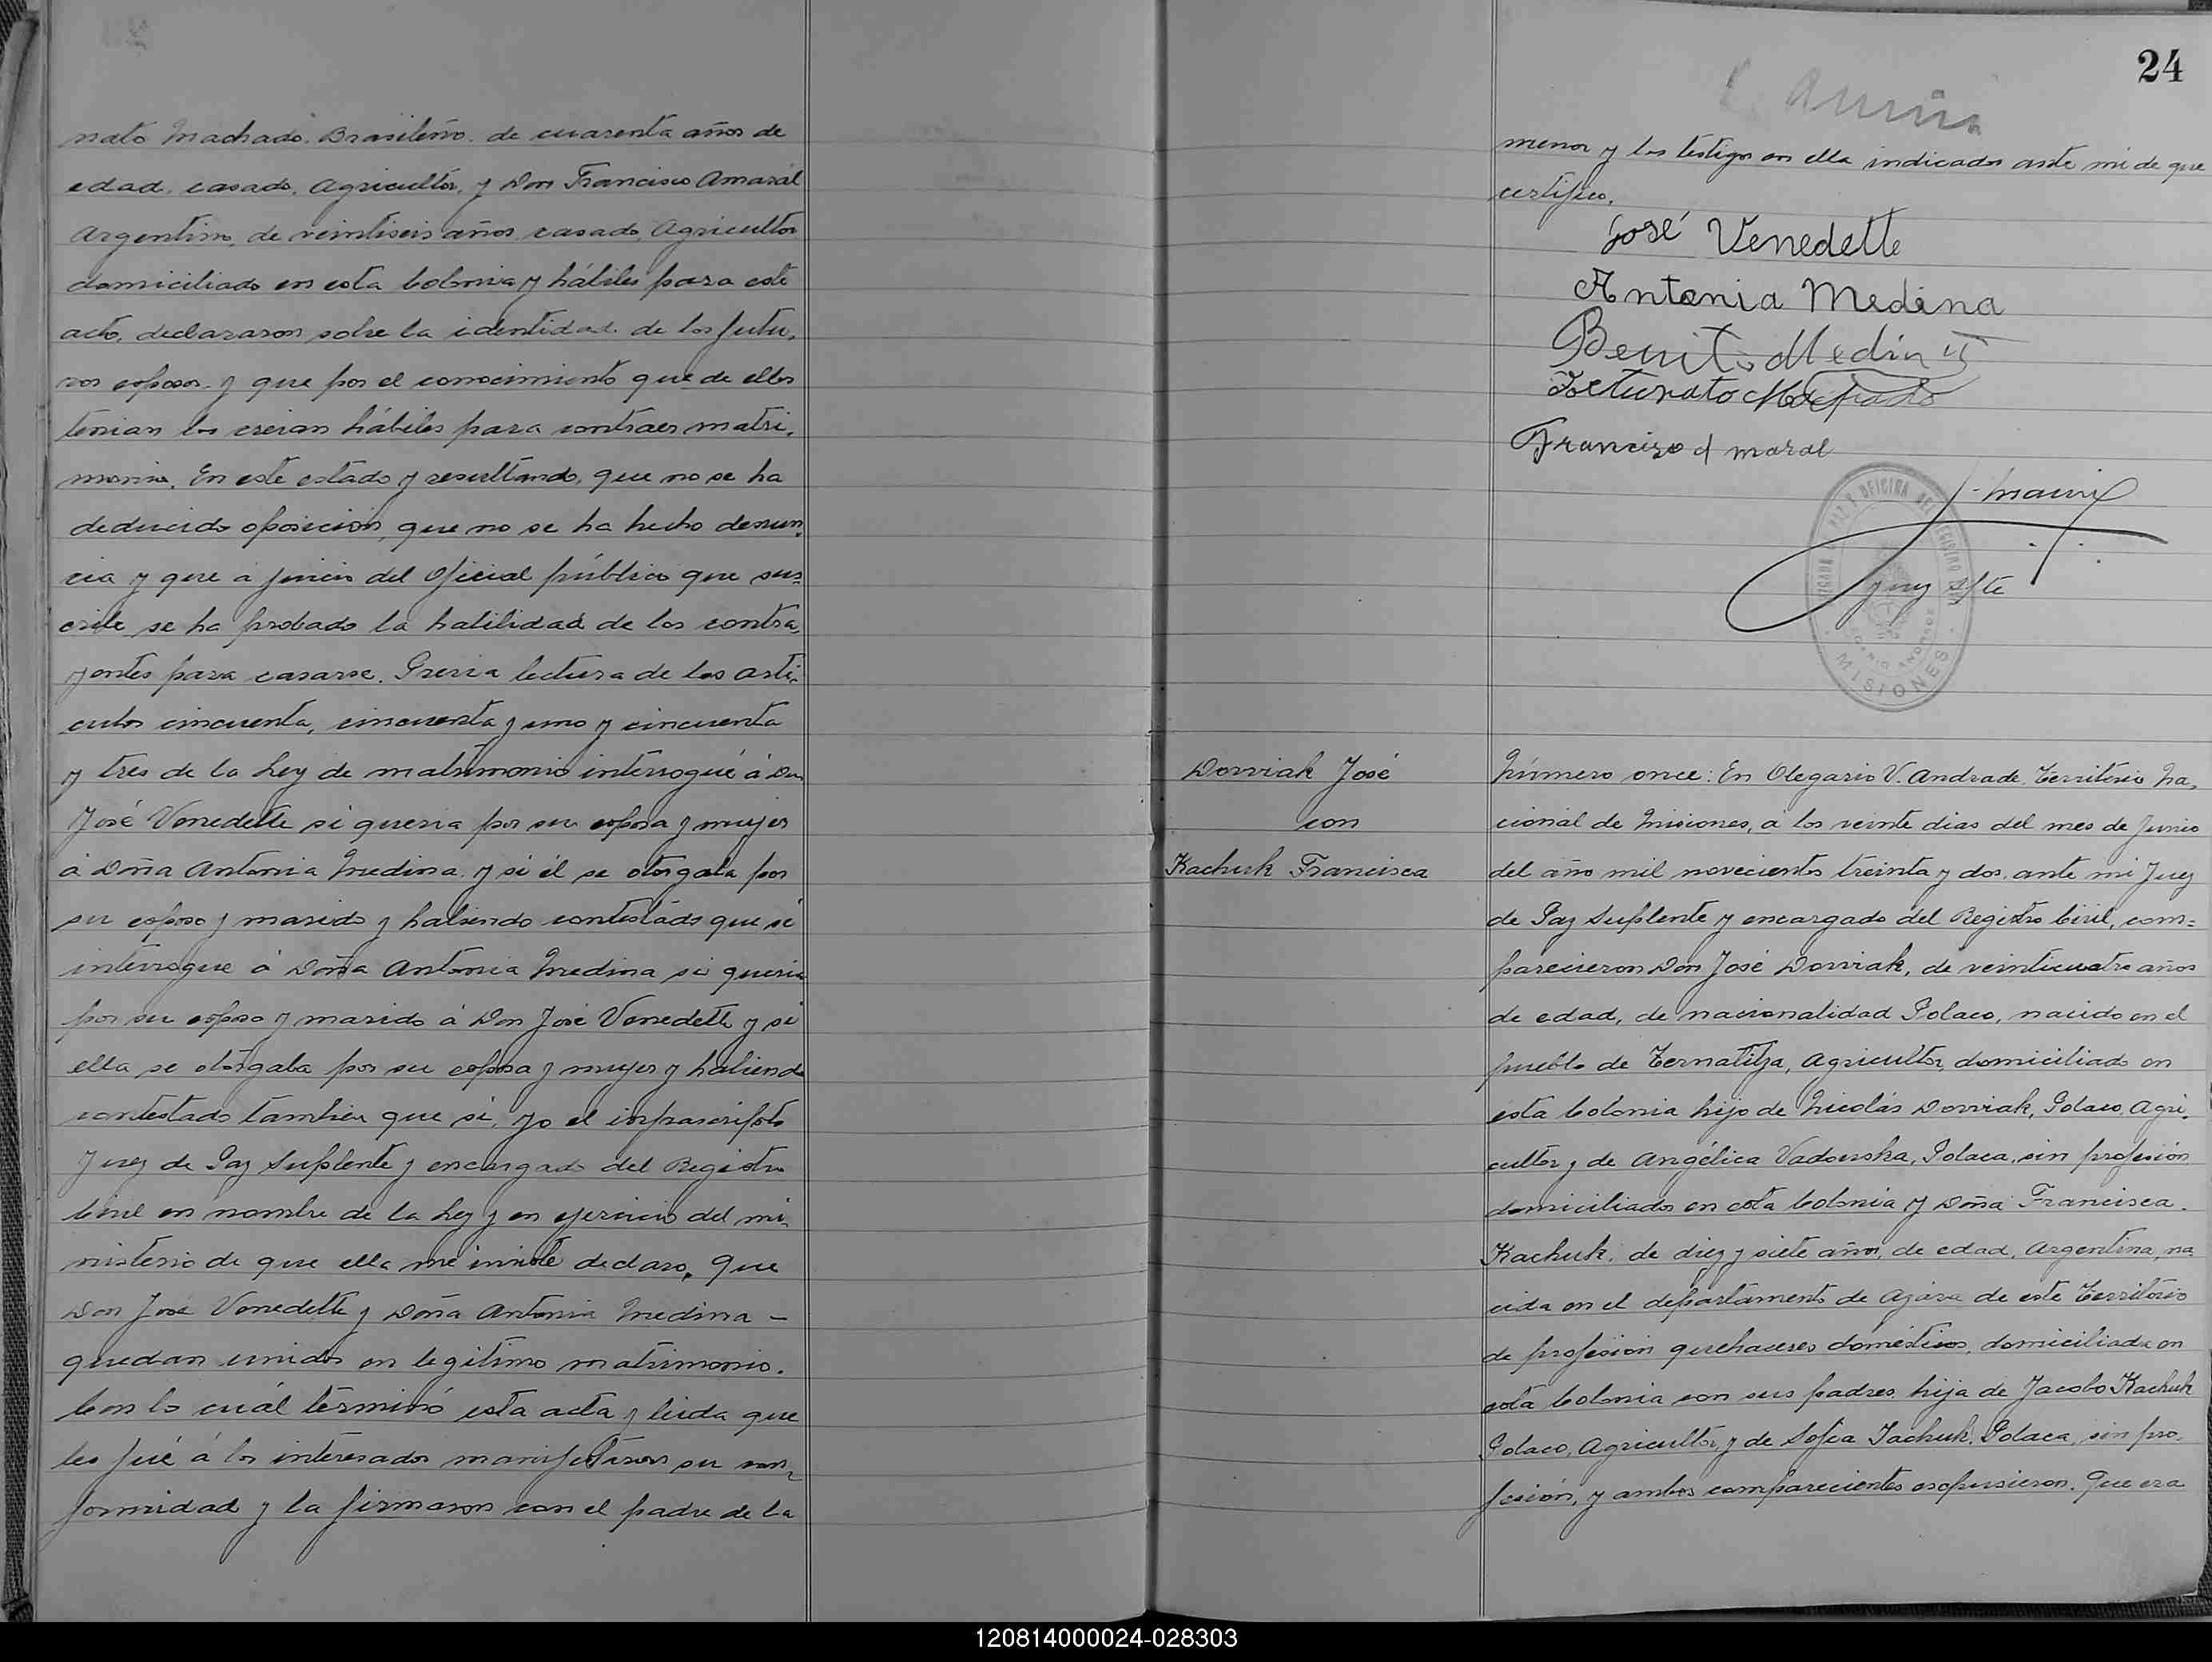 nato Machado. Brasileño. de cuarenta años de
edad, casado, Agricultor, y Don Francisco Amaral
Argentino, de veintiseis años, casado, Agricultor
domiciliado en esta Colonia y hábiles para este
acto, declararon sobre la identidad de los futu,
ros esposos, y que por el conocimiento que de ellos
tenian los creian hábiles para contraer matri,
monio. En este estado y resultando, que no se ha
deducido oposición, que no se ha hecho denun,
cia y que á juicio del Oficial público que sus=
cribe se ha probado la habilidad de los contra,
yentes para casarse. Previa lectura de los arti,
culos cincuenta, cincuenta y uno y cincuenta
y tres de la Ley de matrimonio interrogué á Don
José Venedette si queria por su esposa y mujer
á Doña Antonia Medina y si él se otorgaba por
su esposo y marido y habiendo contestado que si
interrogue á Doña Antonia Medina si queria
por su esposo y marido á Don José Venedette y si
ella se otorgaba por su esposa y mujer y habiendo
contestado tambien que si, yo el infrascripto
Juez de Paz Suplente y encargado del Registro
Civil en nombre de la Ley y en ejercicio del mi,
nisterio de que ella me inviste declaro, Que
Don José Venedette y Doña Antonia Medina –
quedan unidos en legitimo matrimonio.
Con lo cuál terminó esta acta y leida que
les fué á los interesados manifestaron su con,
formidad y la firmaron con el padre de la
24
menor y los testigos en ella indicados ante mi de que
certifico.
José Venedette
Antonia Medina
Benito Medina
Fortunato Machado
Francisco Amaral
Juez Spte
MISIONES
Dorviak José
con
Kachuk Francisca
Número once: En Olegario V. Andrade, Territorio Na,
cional de Misiones, á los veinte dias del mes de Junio
del año mil novecientos treinta y dos, ante mi Juez
de Paz Suplente y encargado del Registro Civil, com=
parecieron Don José Dorviak, de veinticuatro años
de edad, de nacionalidad Polaco, nacido en el
pueblo de Ternatitza, Agricultor, domiciliado en
esta Colonia hijo de Nicolás Dorviak, Polaco, Agri,
cultor y de Angélica Vadovska, Polaca, sin profesión
domiciliados en esta Colonia y Doña Francisca
Kachuk, de diez y siete años, de edad, Argentina, na
cida en el departamento de Azara de este Territorio
de profesión quehaceres domésticos, domiciliada en
esta Colonia con sus padres, hija de Jacobo Kachuk
Polaco, Agricultor, y de Sofia Iachuk, Polaca, sin pro,
fesión, y ambos comparecientes espusieron. Que era
120814000024-028303